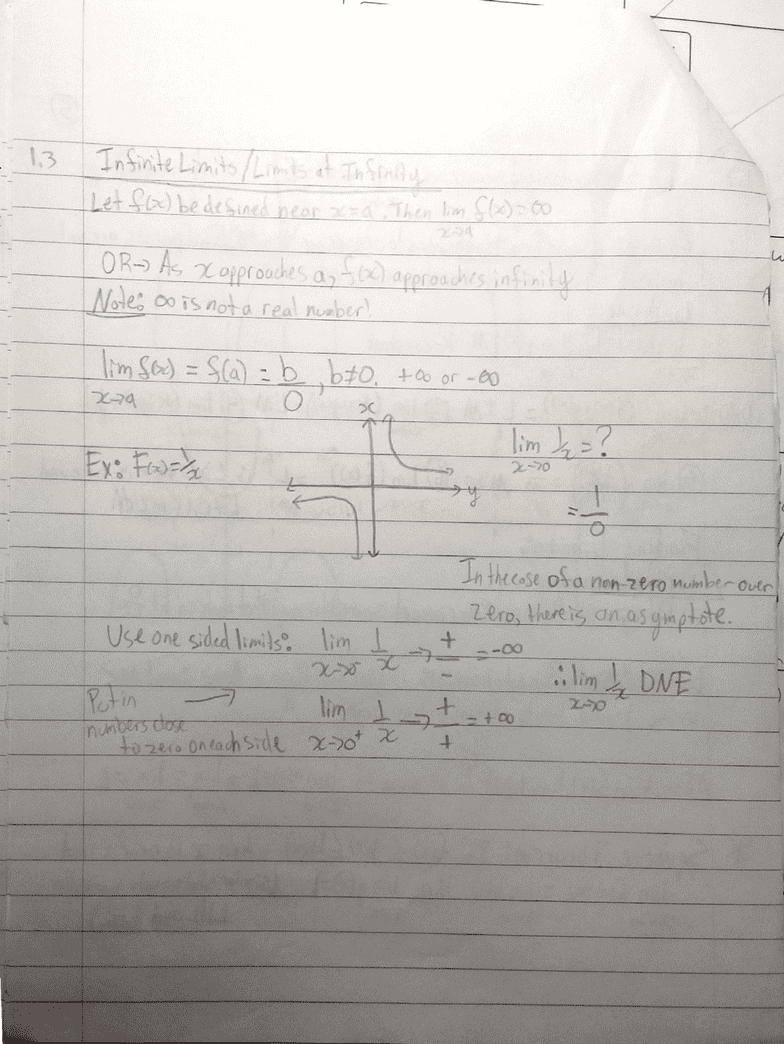 1.3 Infinite Limits/Limits at Infinity
Let f(x) be defined near x=a. Then lim f(x)=∞
x→a
OR→ As x approaches a, f(x) approaches infinity
Note: ∞ is not a real number!
lim f(x) = f(a) = b/0, b≠0. +∞ or -∞
x→a
x
Ex: F(x)=1/x
y
lim 1/x = ?
x→0
= 1/0
In the case of a non-zero number over
zero, there is an asymptote.
Use one sided limits: lim 1/x → +/- = -∞
x→0⁻
∴ lim 1/x DNE
x→0
Put in → lim 1/x → +/+ = +∞
numbers close
to zero on each side x→0⁺